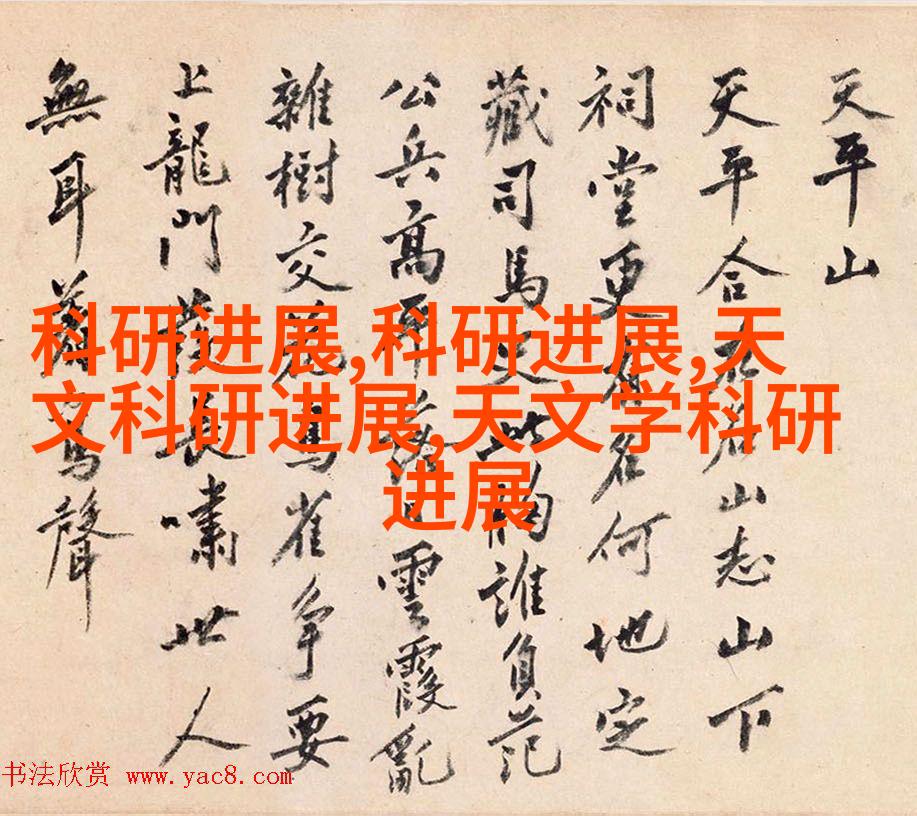 天平山
天平合在山志山下
祠堂更名何地定
藏司馬史此胸誰負范
公兵高平落日雲霞亂
雜樹交花鳥雀爭要
上龍門發長嘯世人
無耳聲
科研进展,科研进展,天
文科研进展,天文学科研
进展
书法欣赏 www.yac8.com